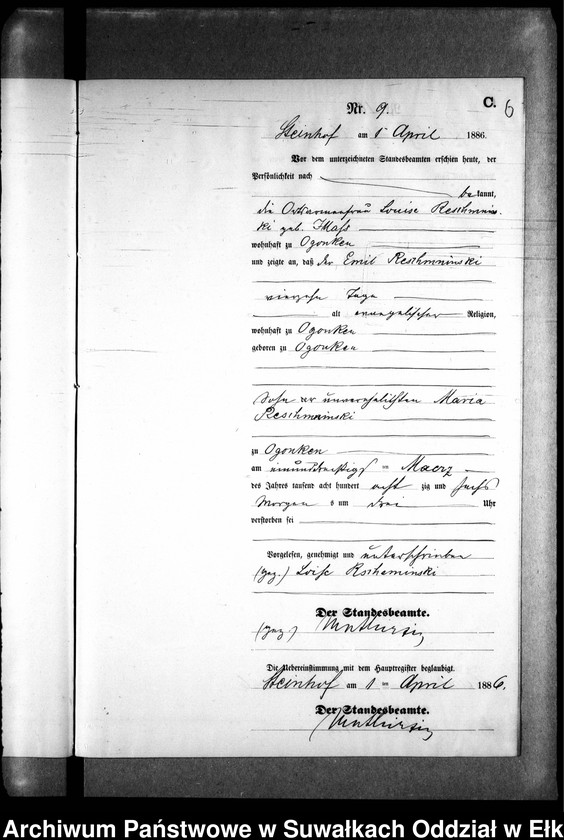 C. 6
Nr. 9.
Steinhof am 1 April 1886.
Vor dem unterzeichneten Standesbeamten erschien heute, der
Persönlichkeit nach
bekannt,
die Ortsarmenfrau Louise Reschmnins-
ki geb. Mass
wohnhaft zu Ogonken
und zeigte an, daß der Emil Reschmninski
vierzehn Tage
alt evangelischer Religion,
wohnhaft zu Ogonken
geboren zu Ogonken
Sohn der unverehelichten Maria
Reschmninski
zu Ogonken
am einunddreißigst en Maerz
des Jahres tausend acht hundert acht zig und sechs
Morgen s um drei Uhr
verstorben sei
Vorgelesen, genehmigt und unterschrieben
(gez.) Loise Rscheminski
Der Standesbeamte.
(gez)
Die Uebereinstimmung mit dem Hauptregister beglaubigt.
Steinhof am 1 ten April 1886.
Der Standesbeamte.
Archiwum Państwowe w Suwałkach Oddział w Ełk